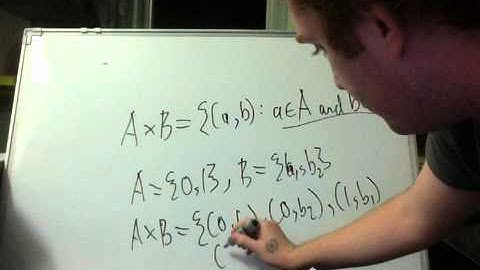 A×B = {(a,b): a∈A and b
A={0,1}, B={b₁,b₂}
A×B={(0,b₁),(0,b₂),(1,b₁)
(